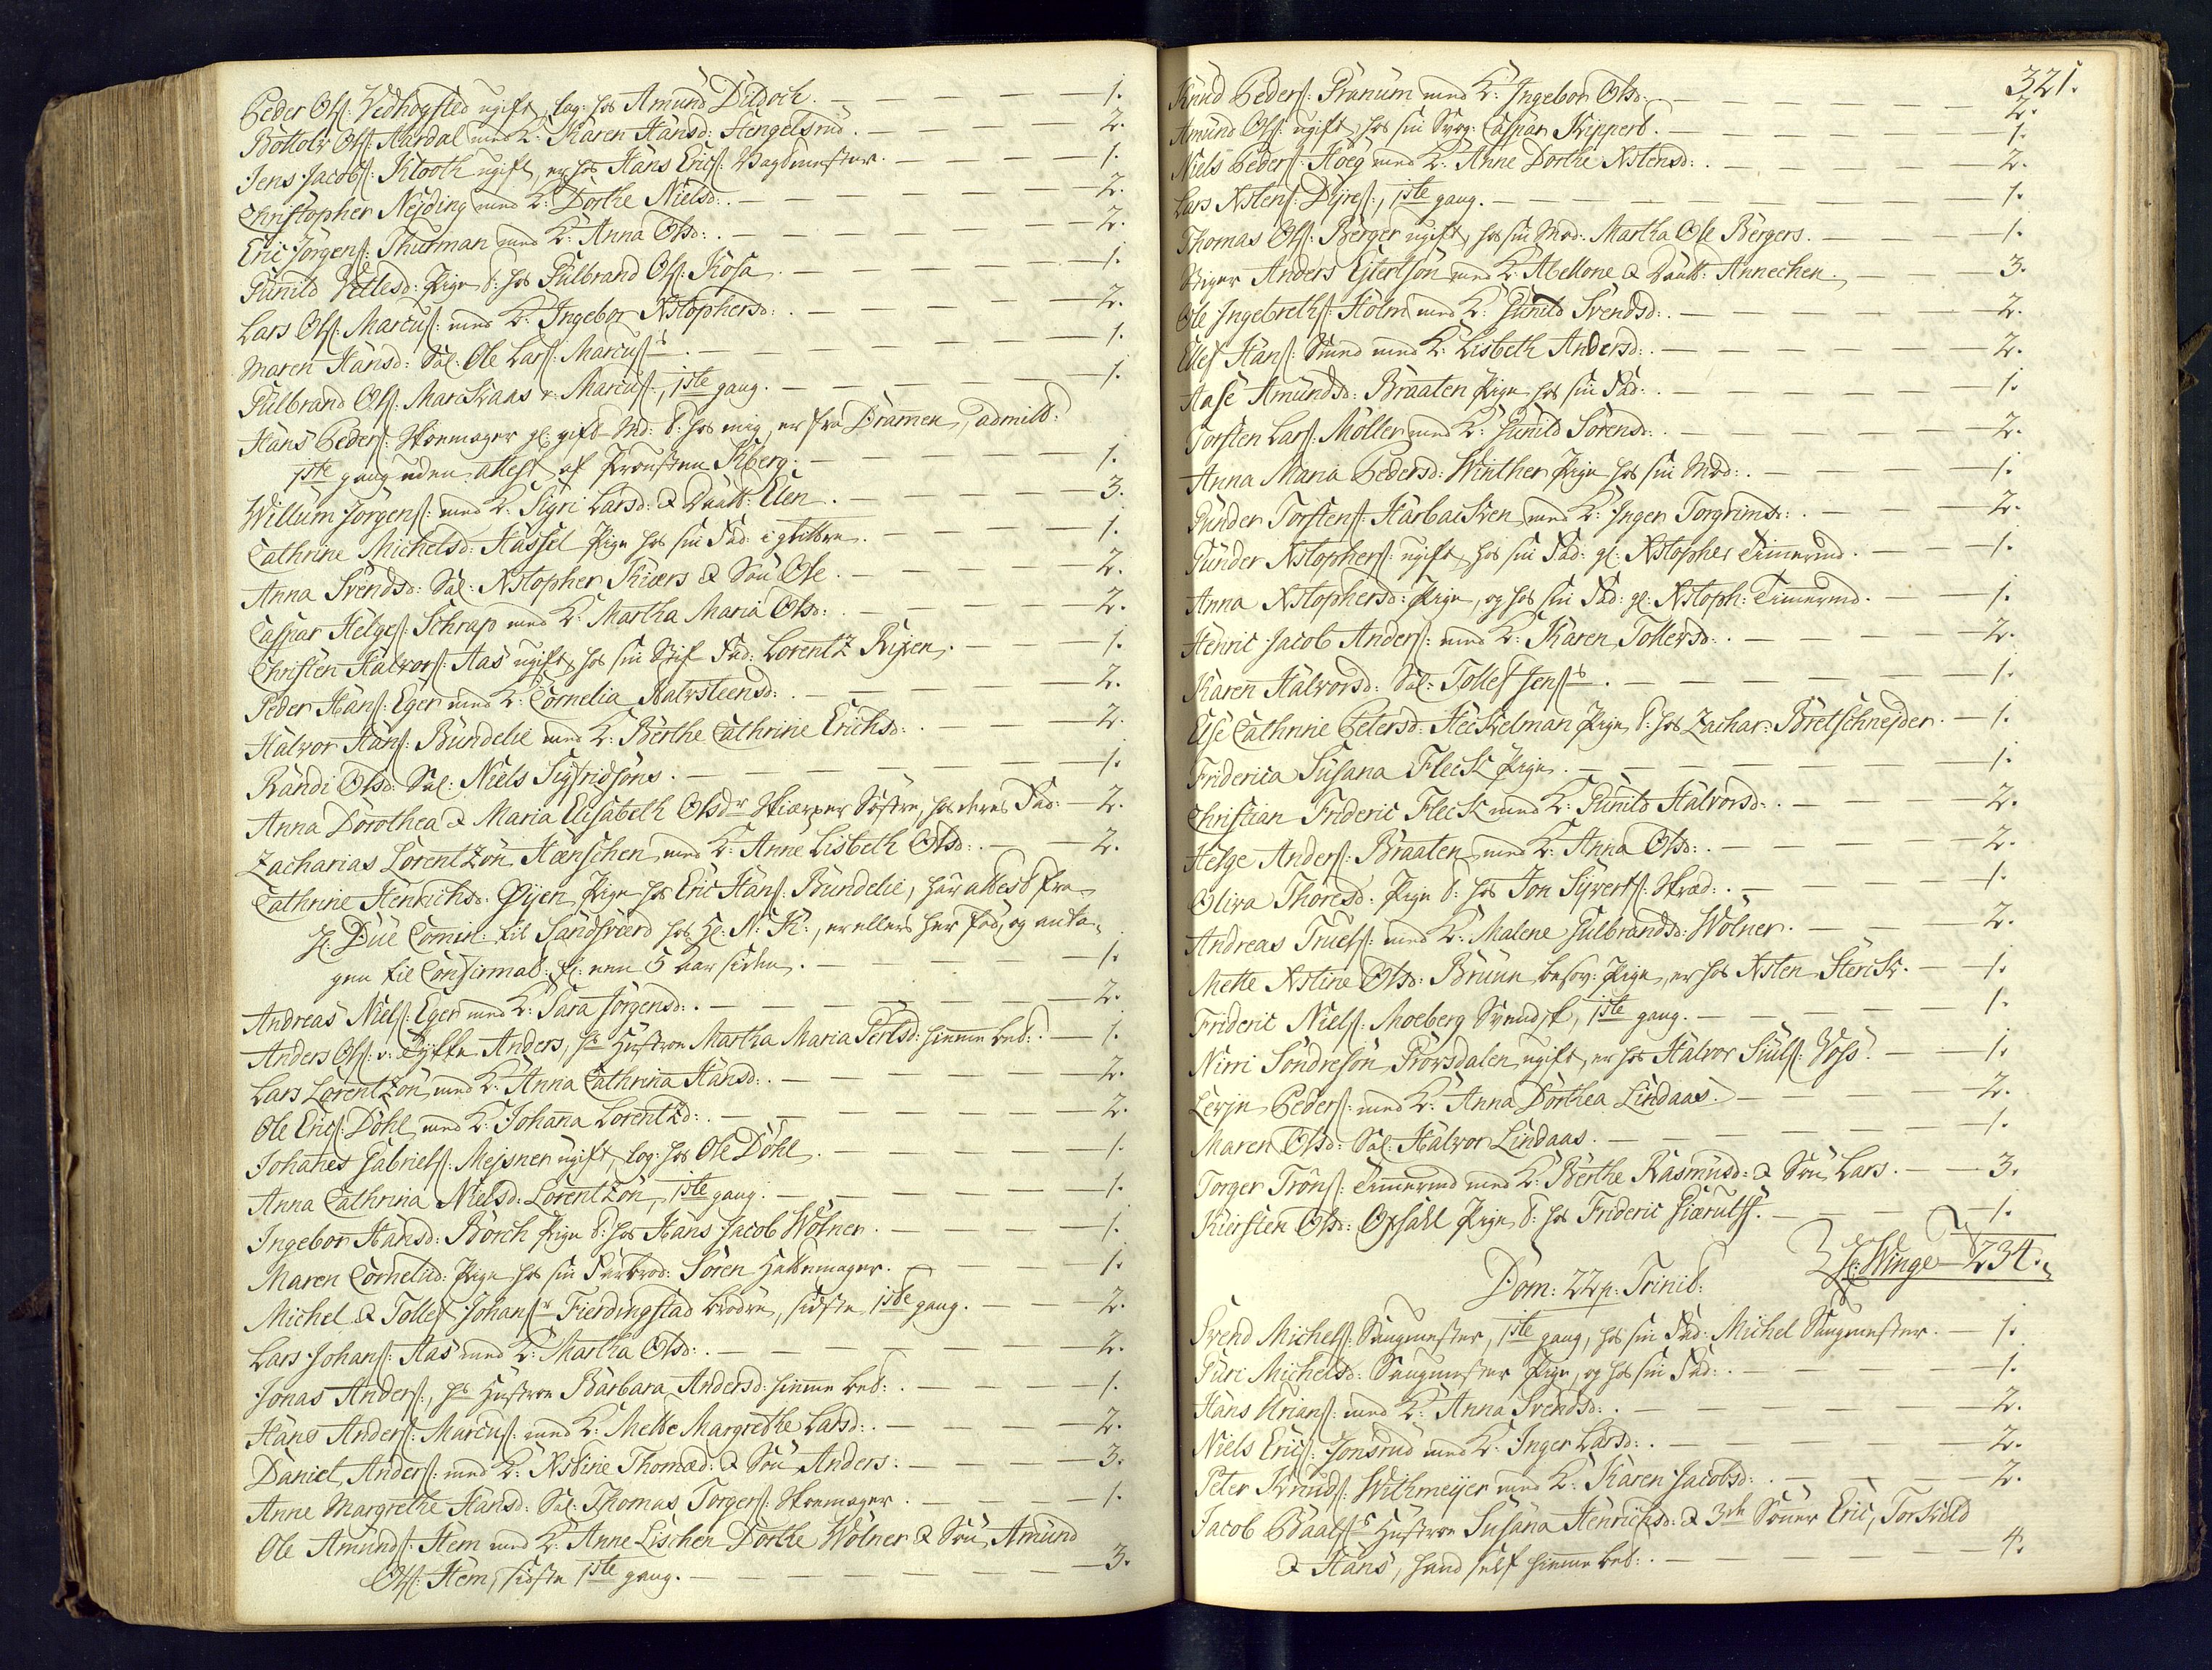 Peder Olſ: Vedhogsted ugift, log: hos Amund Dildoch. — 1.
Bottolv Olſ: Aardal med K: Karen Hansd: Hengelsrud. — 2.
Jens Jacobſ: Klooth ugift, er hos Hans Ericſ: Bagsmester. — 1.
Christopher Nejding med K: Dorthe Nielsd: — 2.
Eric Jörgenſ: Thurman med K: Anna Olsd: — 2.
Gunild Vetlesd: Pige t: hos Gulbrand Olſ: Kosa. — 1.
Lars Olſ: Marcuſ: med K: Ingebor Xstophersd: — 2.
Maren Hansd: Sal: Ole Larſ: Marcuſs. — 1.
Gulbrand Olſ: Markaas v: Marcuſ:, 1ste gang. — 1.
Hans Pederſ: Skoemager gl: gift Md: t: hos mig, er fra Dramen, admitt:
1ste gang uden attest af Provsten Kberg. — 1.
Willum Jörgenſ: med K: Sigri Larsd: & Daatt: Elen. — 3.
Cathrine Michelsd: Hassel Pige hos sin Fad: i glittre. — 1.
Anna Svendsd: Sal: Xstopher Skiærs & Sön Ole. — 2.
Caspar Helgeſ: Schrap med K: Martha Maria Olsd: — 2.
Christen Halvorſ: Aas ugift, hos sin Stif Fad: Lorentz Rixen. — 1.
Peder Hanſ: Eger med K: Cornelia Halvsteensd: — 2.
Halvor Hanſ: Bundelie med K: Berthe Cathrine Erichsd: — 2.
Randi Olsd: Sal: Niels Sigfridsöns. — 1.
Anna Dorothea & Maria Elisabeth Olsdr Skiærper Söstre, hos deres Fad: — 2.
Zacharias Lorentzön Hænschen med K: Anne Lisbeth Olsd: — 2.
Cathrine Henrichsd: Öÿen Pige hos Eric Hanſ: Bundelie, har attest fra
H: Due Comin: til Sandsværd hos H: N: K:, er ellers her fød, og anta-
gen til Confirmat: fl: enn 5 aar siden. — 1.
Andreas Nielſ: Eger med K: Sara Jörgensd: — 2.
Anders Olſ: v: Tÿkke Anders, hs Hustroe Martha Maria Pertsd: hiemme bet: — 1.
Lars Lorentzön med K: Anna Cathrina Hansd: — 2.
Ole Ericſ: Döhl med K: Johana Lorentzd: — 2.
Johanes Gabrielſ: Mejsner ugift, log: hos Ole Döhl. — 1.
Anna Cathrina Nielsd: Lorentzön, 1ste gang. — 1.
Ingebor Hansd: Borch Pige t: hos Hans Jacob Wölner. — 1.
Maren Cornelid: Pige hos sin Farbrod: Sören Hattemager. — 1.
Michel & Tollef Johanſr Fierdingstad brödre, sidste 1ste gang. — 2.
Lars Johanſ: Aas med K: Martha Olsd: — 2.
Jonas Anderſ:, hs Hustroe Barbara Andersd: hiemme bet: — 1.
Hans Anderſ: Marcuſ: med K: Mette Margrethe Larsd: — 2.
Daniel Anderſ: med K: Kstine Thomæd: & Sön Anders: — 3.
Anne Margrethe Hansd: Sal: Thomas Torgerſ: Skoemager. — 1.
Ole Amundſ: Hem med K: Anne Lischen Dorthe Wölner & Sön Amund
Olſ: Hem, sidste 1ste gang. — 3.
321.
Knud Pederſ: Pranum med K: Ingebor Olsd: — 2.
Amund Olſ: ugift, hos sin Svog: Caspar Kippert. — 1.
Niels Pederſ: Höeg med K: Anne Dorthe Xstensd: — 2.
Lars Xstenſ: Dÿreſ:, 1ste gang. — 1.
Thomas Olſ: Berger ugift, hos sin Mod: Martha Ole Bergers. — 1.
Stiger Anders Ejlertsön med K: Abellone & Daatt: Annechen. — 3.
Ole Ingebrethſ: Holm med K: Gunild Svendsd: — 2.
Elef Hanſ: Smed med K: Lisbeth Andersd: — 2.
Aase Amundsd: Braaten Pige hos sin Fad: — 1.
Torsten Larſ: Möller med K: Gunild Sörensd: — 2.
Anna Maria Pedersd: Winther Pige hos sin Mod: — 1.
Gunder Torstenſ: Harbacken med K: Inger Torgrimsd: — 2.
Gunder Xstopherſ: ugift, hos sin Fad: gl: Xstopher Timermd. — 1.
Anna Xstophersd: Pige, og hos sin Fad: gl: Xstoph: Timermd. — 1.
Henric Jacob Anderſ: med K: Karen Tollersd: — 2.
Karen Halvorsd: Sal: Tollef Jenſs. — 1.
Else Cathrine Petersd: Heckelman Pige t: hos Zachar: Bretschnejder. — 1.
Friderica Susana Fleck Pige. — 1.
Christian Frideric Fleck med K: Gunild Halvorsd: — 2.
Helge Anderſ: Braaten med K: Anna Olsd: — 2.
Oliva Thoresd: Pige t: hos Jon Sÿvertſ: Skræd: — 1.
Andreas Truelſ: med K: Malene Gulbrandsd: Wölner. — 2.
Mette Xstine Olsd: Bruun besov: Pige, er hos Xsten Sterck. — 1.
Frideric Nielſ: Moeberg Svendsk, 1ste gang. — 1.
Nirri Söndresön Provsdalen ugift, er hos Halvor Siulſ: Voss. — 1.
Levin Pederſ: med K: Anna Dorthea Lindaas. — 2.
Maren Olsd: Sal: Halvor Lindaas. — 1.
Torger Tronſ: Timermd med K: Berthe Rasmusd: & Sön Lars. — 3.
Kiersten Olsd: Opsahl Pige t: hos Frideric Giærulſs. — 1.
H: Winge 234.
Dom: 22 p: Trinit:
Svend Michelſ: Saugmester, 1ste gang, hos sin Fad: Michel Saugmester. — 1.
Guri Michelsd: Saugmester Pige, og hos sin Fad: — 1.
Hans Urianſ: med K: Anna Svendsd: — 2.
Niels Ericſ: Jonsrud med K: Inger Larsd: — 2.
Peter Knudſ: Withmeÿer med K: Karen Jacobsd: — 2.
Jacob Paalſs Hustroe Susana Henrichsd: & 3de Sönner Eric, Torkild
& Hans, hand self hiemme bet: — 4.